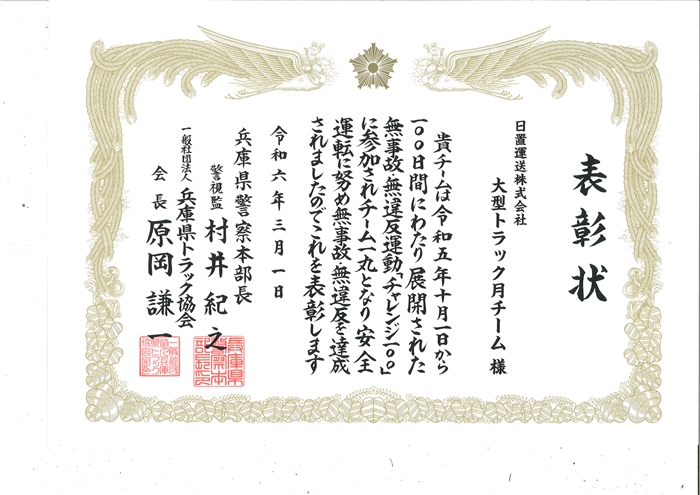 表彰状
日置運送株式会社
大型トラック月チーム 様
貴チームは令和五年十月一日から
一〇〇日間にわたり展開された
無事故・無違反運動「チャレンジ一〇〇」
に参加されチーム一丸となり安全
運転に努め無事故・無違反を達成
されましたのでこれを表彰します
令和六年三月一日
兵庫県警察本部長
警視監 村井紀之
一般社団法人 兵庫県トラック協会
会長 原岡謙一
兵庫県警察本部長印